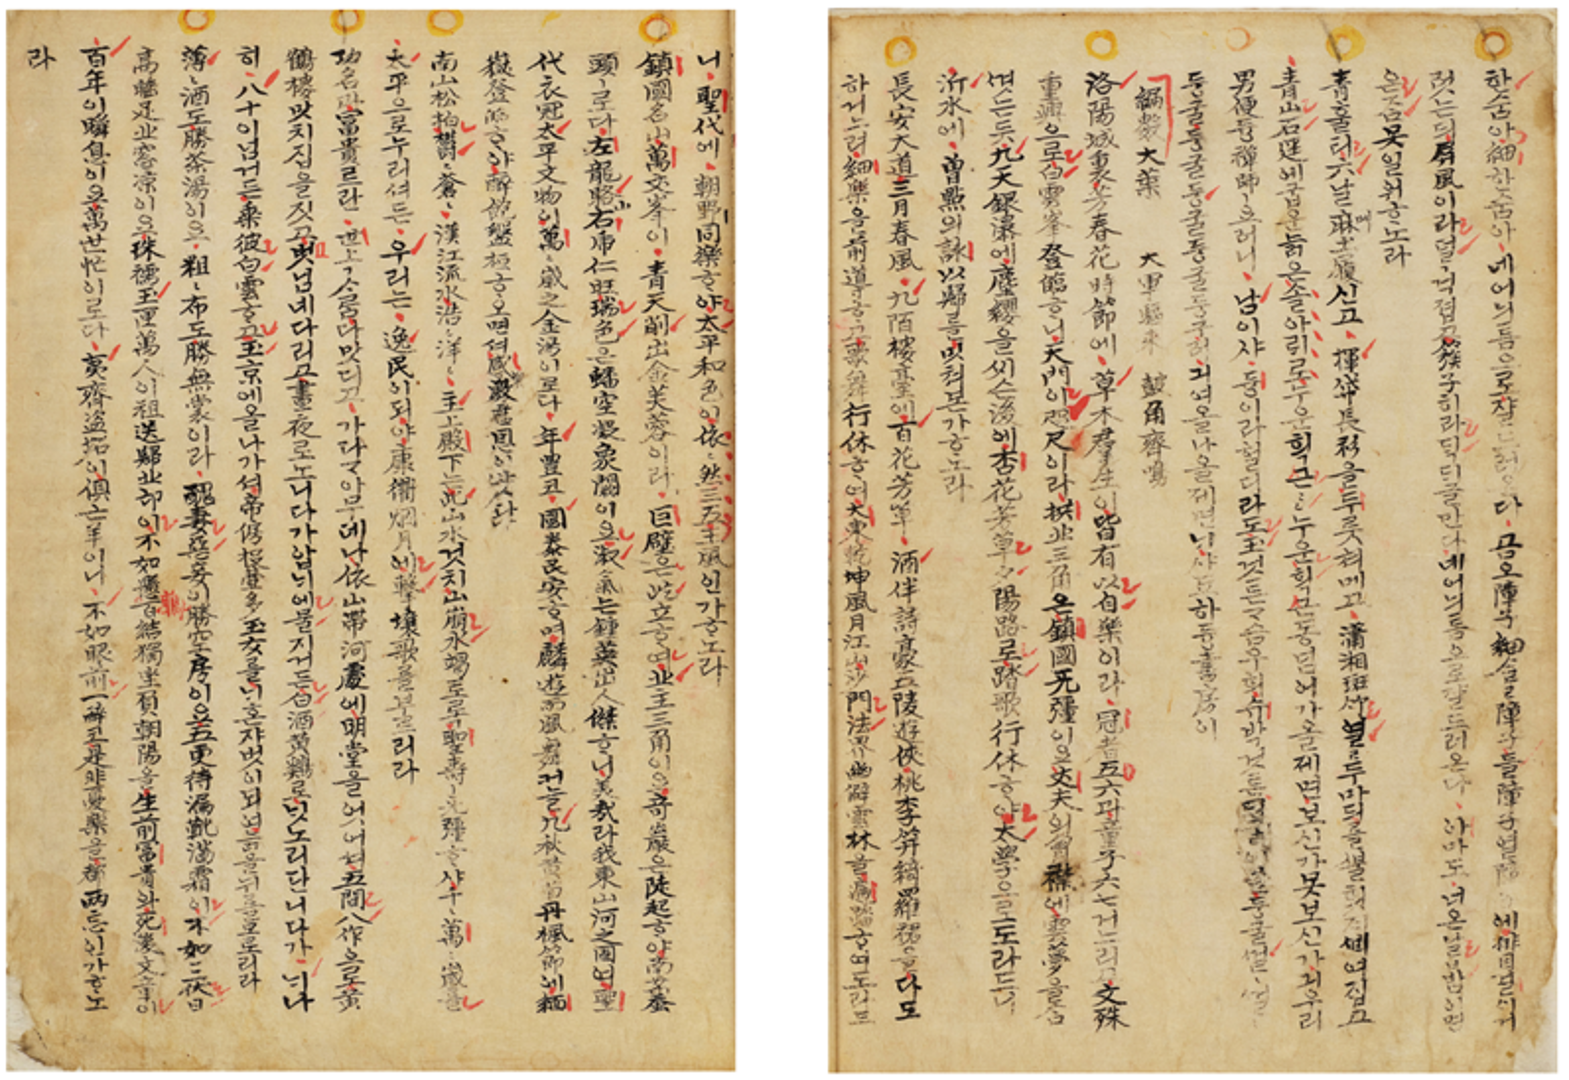 한숨아 細한숨아 네 어늬 틈으로 잘 드러온다 곰오障子 細살障子 들障子 열障子에 排目걸쇠 거
럿는듸 屛風이라 덜걱 접고 簇子ㅣ라 듸듸글 만다 네 어늬 틈으로 잘 드러온다 아마도 너 온 날 밤이면
은 줌 못 일워 ᄒᆞ노라
靑올티 六날 麻土履 신고 揮帒長衫을 두루쳐 메고 瀟湘斑竹 열두 마듸를 집고
靑山石逕에 굽은 늙은 솔 아ᄅᆡ로 누운 획근 누운 획근동 넌어가올 제면 보신가 못 보신가 긔 우리
男便 禪師ㅣ러니 남이샤 듕이라 헐디라도 玉것튼 가슴 우희 수박것튼
둥굴둥굴 둥굴둥굴 둥구러 긔여올나 올 제면 니샤 됴하 듕書房이
編數大葉 大軍驅來 鼓角齊鳴
洛陽城裏芳春花時節에 草木群生이 皆有以自樂이라 冠者五六과 童子六七 거느리고 文殊
重興으로 白雲峯 登臨ᄒᆞ니 天門이 咫尺이라 拱北三角은 鎭國无彊이요 丈夫의 胸襟에 雲夢을 삼
엿는듯 九天銀瀑에 塵纓을 씨슨 後에 杏花芳草夕陽路로 踏歌行休ᄒᆞ야 太學으로 도라드니
沂水에 曾點의 詠以歸를 밋쳐 본가 ᄒᆞ노라
長安大道三月春風 九陌樓臺에 百花芳草 酒伴詩豪五陵遊俠桃李笄綺羅裙을 다 도
하 거느려 細樂을 前導ᄒᆞ고 歌舞行休ᄒᆞ여 大東乾坤風月江山沙門法界幽僻雲林을 遍踏ᄒᆞ여 도라보
니 聖代에 朝野同樂ᄒᆞ야 太平和色이 依依然三五王風인가 ᄒᆞ노라
鎭國名山萬丈峯이 靑天削出金芙蓉이라 巨壁은 屹立ᄒᆞ여 北主三角이요 奇巖은 陡起ᄒᆞ야 南案蚕
頭ㅣ로다 左龍駱山 右虎仁旺 瑞色은 蟠空凝象闕이요 淑氣는 鍾英出人傑ᄒᆞ니 美哉라 我東山河之固여 聖
代衣冠太平文物이 萬萬歲之金湯이로다 年豊코 國泰民安ᄒᆞ여 麟遊而鳳舞커늘 九秋黃菊丹楓節에 緬
嶽登臨ᄒᆞ야 醉飽盤桓ᄒᆞ오면셔 感激君恩이샷다
南山松柏鬱鬱蒼蒼 漢江流水浩浩洋洋 主上殿下는 此山水것치 山崩水竭토록 聖壽ㅣ无彊ᄒᆞ샤 千千萬萬歲를
太平으로 누리셔든 우리는 逸民이 되야 康衢烟月에 擊壤歌를 부르리라
功名과 富貴르란 世上ㅅ사ᄅᆞᆷ 다 맛디고 가다가 아무데나 依山帶河處에 明堂을 어더셔 五間八作으로 黃
鶴樓맛치 집을 짓고 벗님네 다리고 晝夜로 노니다가 압니에 물지거든 白酒黃鷄로 닛노리 단니다가 ᄂᆡ 나
히 八十이 넘거든 乘彼白雲ᄒᆞ고 玉京에 올나가셔 帝傍投壺多玉女를 ᄂᆡ 혼ᄌᆞ 벗이 되여 늙을 뉘를 모로리라
薄薄酒도 勝茶湯이요 粗粗布도 勝無裳이라 醜妻惡妾이 勝空房이요 五更待漏靴滿霜이 不如三伏日
高睡足北窓凉이요 珠襦玉匣萬人이 祖送歸北邙이 不如懸鶉百結獨坐負朝陽을 生前富貴와 死後文章이
百年이 瞬息이요 萬世忙이로다 夷齊盜拓이 俱亡羊이니 不如眼前一醉코 是非憂樂을 都兩忘인가 ᄒᆞ노
라